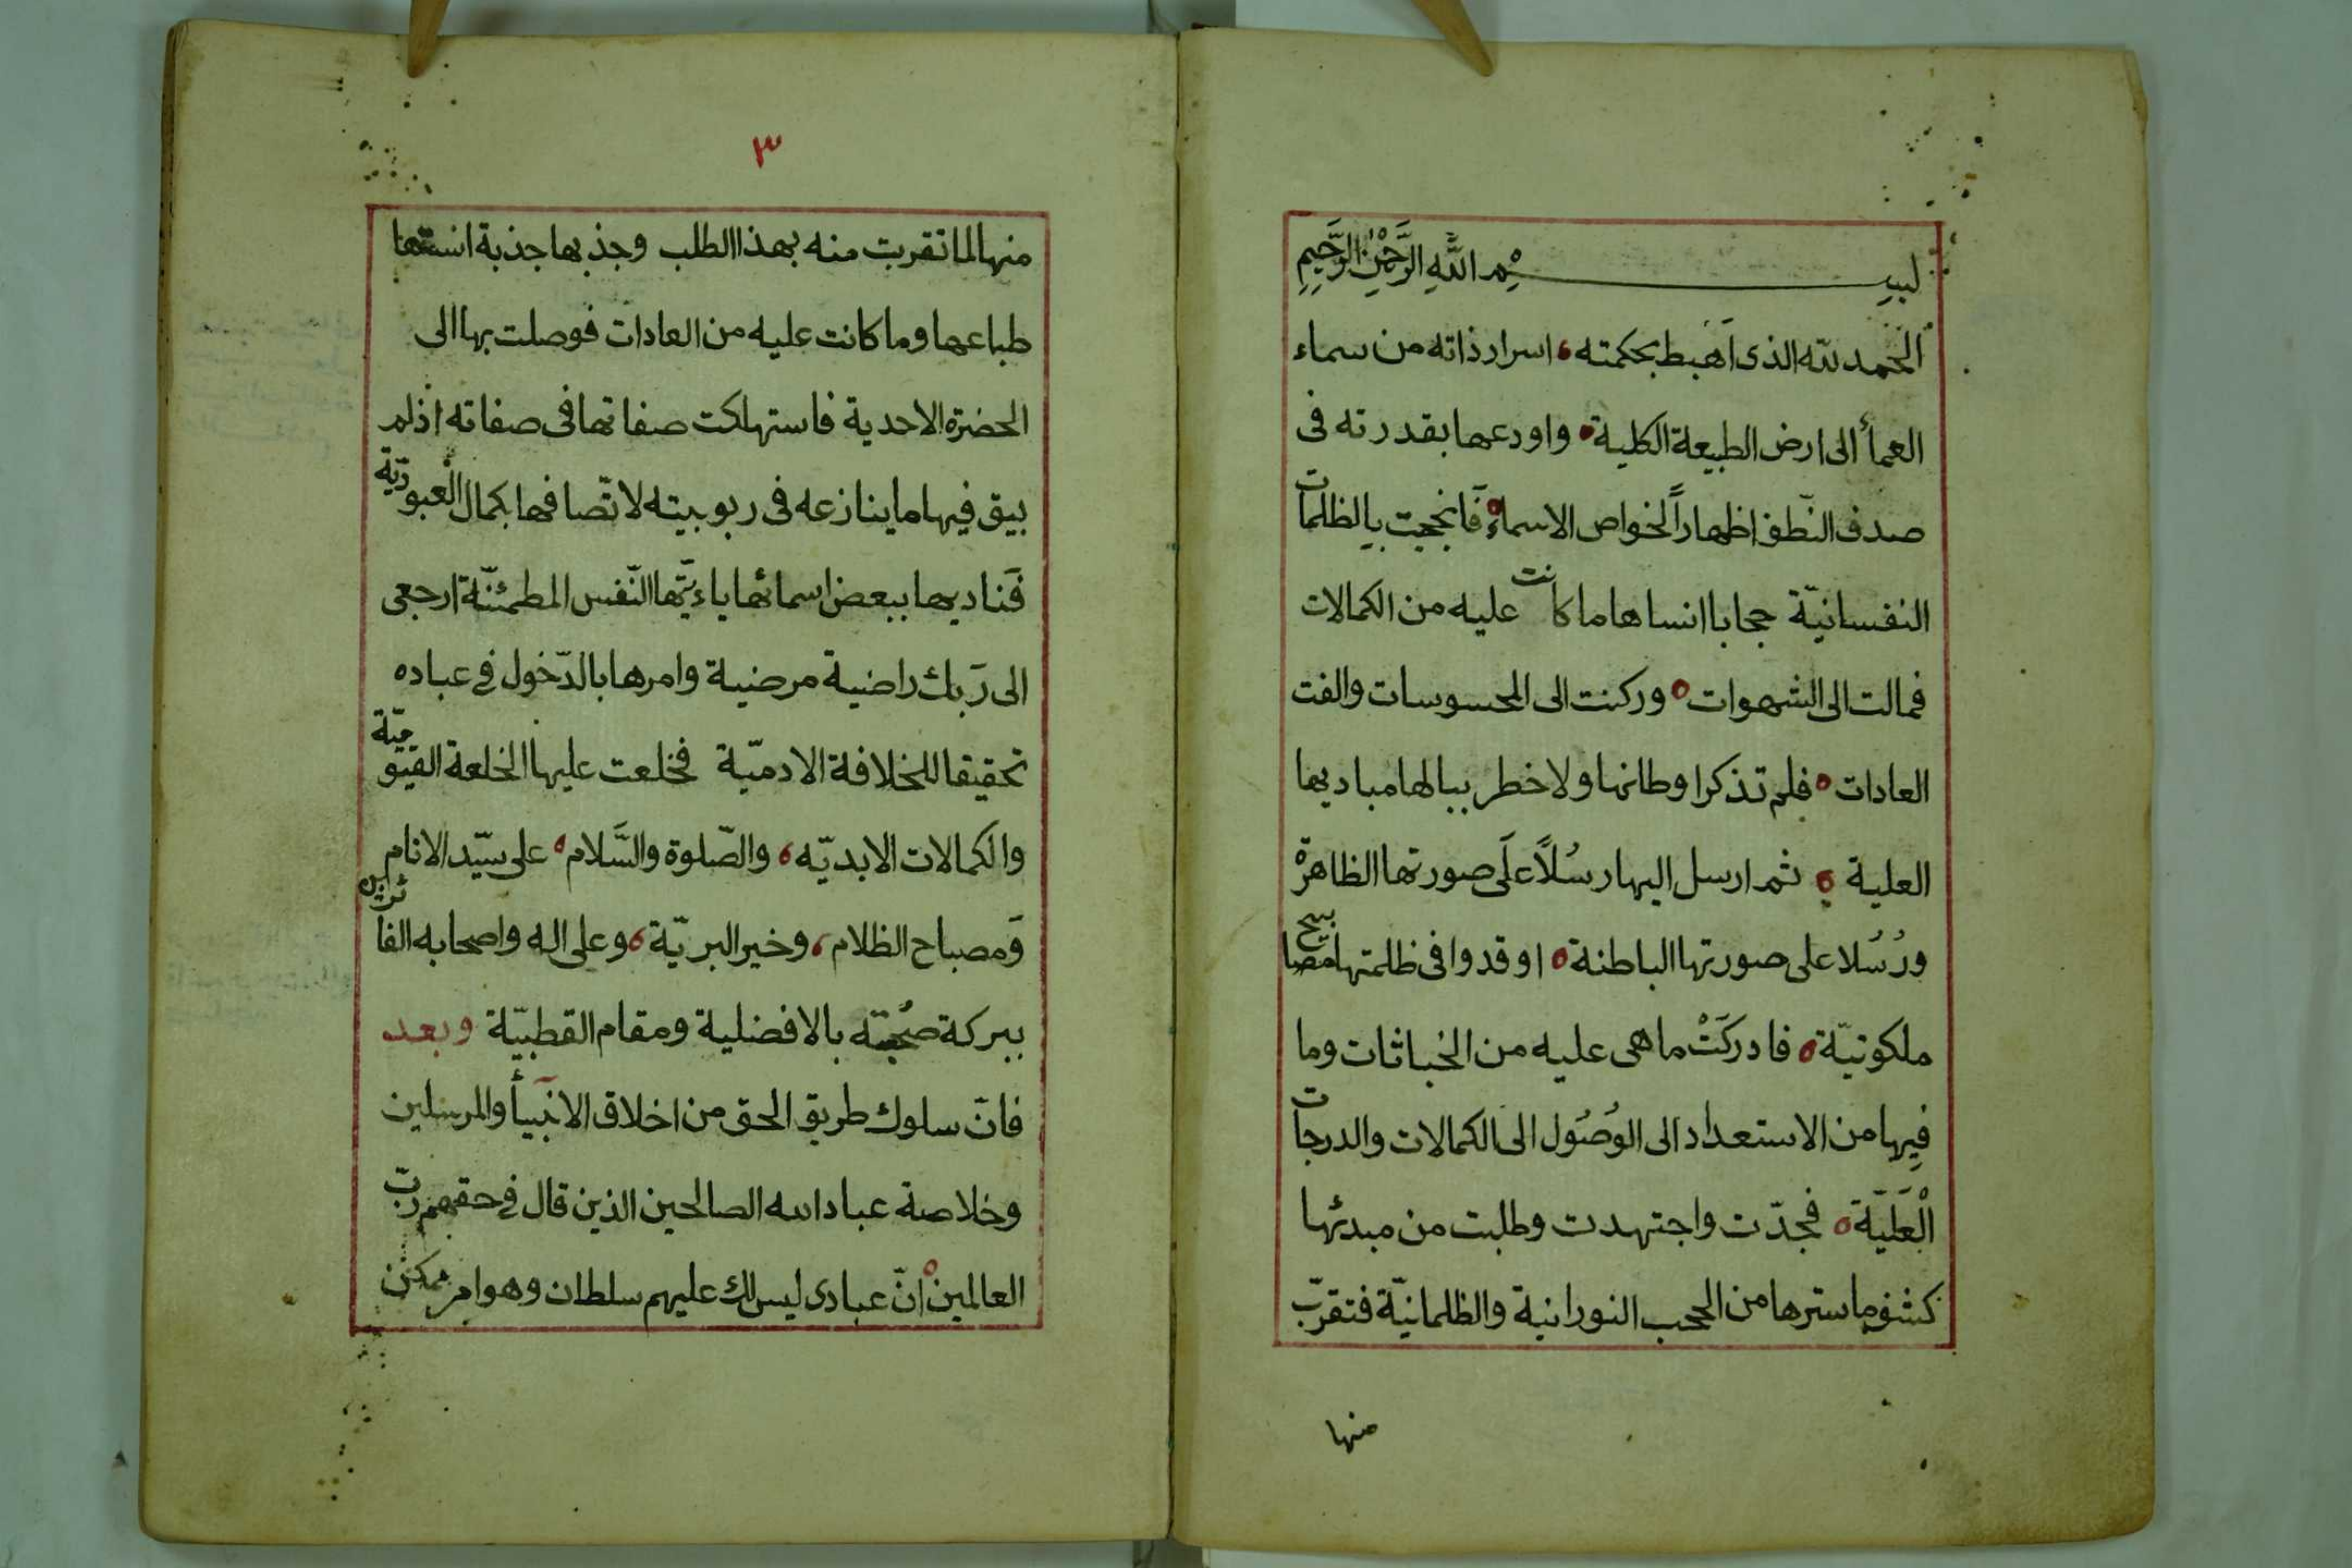 بسم الله الرَّحْمٰنِ الرَّحِيمِ
الحمد لله الذى اَهبط بحكمته اسرار ذاته من سماء
العمأ الى ارض الطبيعة الكلية واودعها بقدرته فى
صدف النّطف اظهاراً لخواص الاسماء فَانحجبت بالظلمات
النفسانيّة حجابا انساها ما كانت عليه من الكمالات
فمالت الى الشهوات وركنت الى المحسوسات والفت
العادات فلم تذكر اوطانها ولا خطر ببالها مباديها
العلية ثم ارسل اليها رسُلاً عَلَى صورتها الظاهرة
ورُسُلا على صورتها الباطنة اوقدوا فى ظلمتها مصابيح
ملكوتيّة فادركَتْ ما هى عليه من الخباثات وما
فِيها من الاستعداد الى الوُصُول الى الكمالات والدرجات
الْعَلَيّة فجدّت واجتهدت وطلبت من مبدئها
كشف ما سترها من الحجب النورانية والظلمانيّة فتقرّب
منها
٣
منها لما تقربت منه بهذا الطلب وجذبها جذبة انستها
طباعها وما كانت عليه من العادات فوصلت بها الى
الحضرة الاحدية فاستهلكت صفاتها فى صفاته اذ لم
يبق فيها ما ينازعه فى ربوبيته لاتّصافها بكمال العبوديّة
فَناديها ببعض اسمائها ياءيّتها النّفس المطمئنّة ارجعى
الى رَبك راضية مرضية وامرها بالدّخول فى عباده
تحقيقا للخلافة الادميّة فخلعت عليها الخلعة القيّوميّة
والكمالات الابديّه والصّلوة والسَّلام على سيّد الانام
وَمصباح الظلام وخير البريّة وعلى اله واصحابه الفائزين
ببركة صُحبته بالافضلية ومقام القطبيّة وبعد
فانّ سلوك طريق الحق من اخلاق الانبيأ والمرسلين
وخلاصة عباد الله الصالحين الذين قال فى حقهم ربّ
العالمين انّ عبادى ليس لك عليهم سلطان وهو امر ممكن